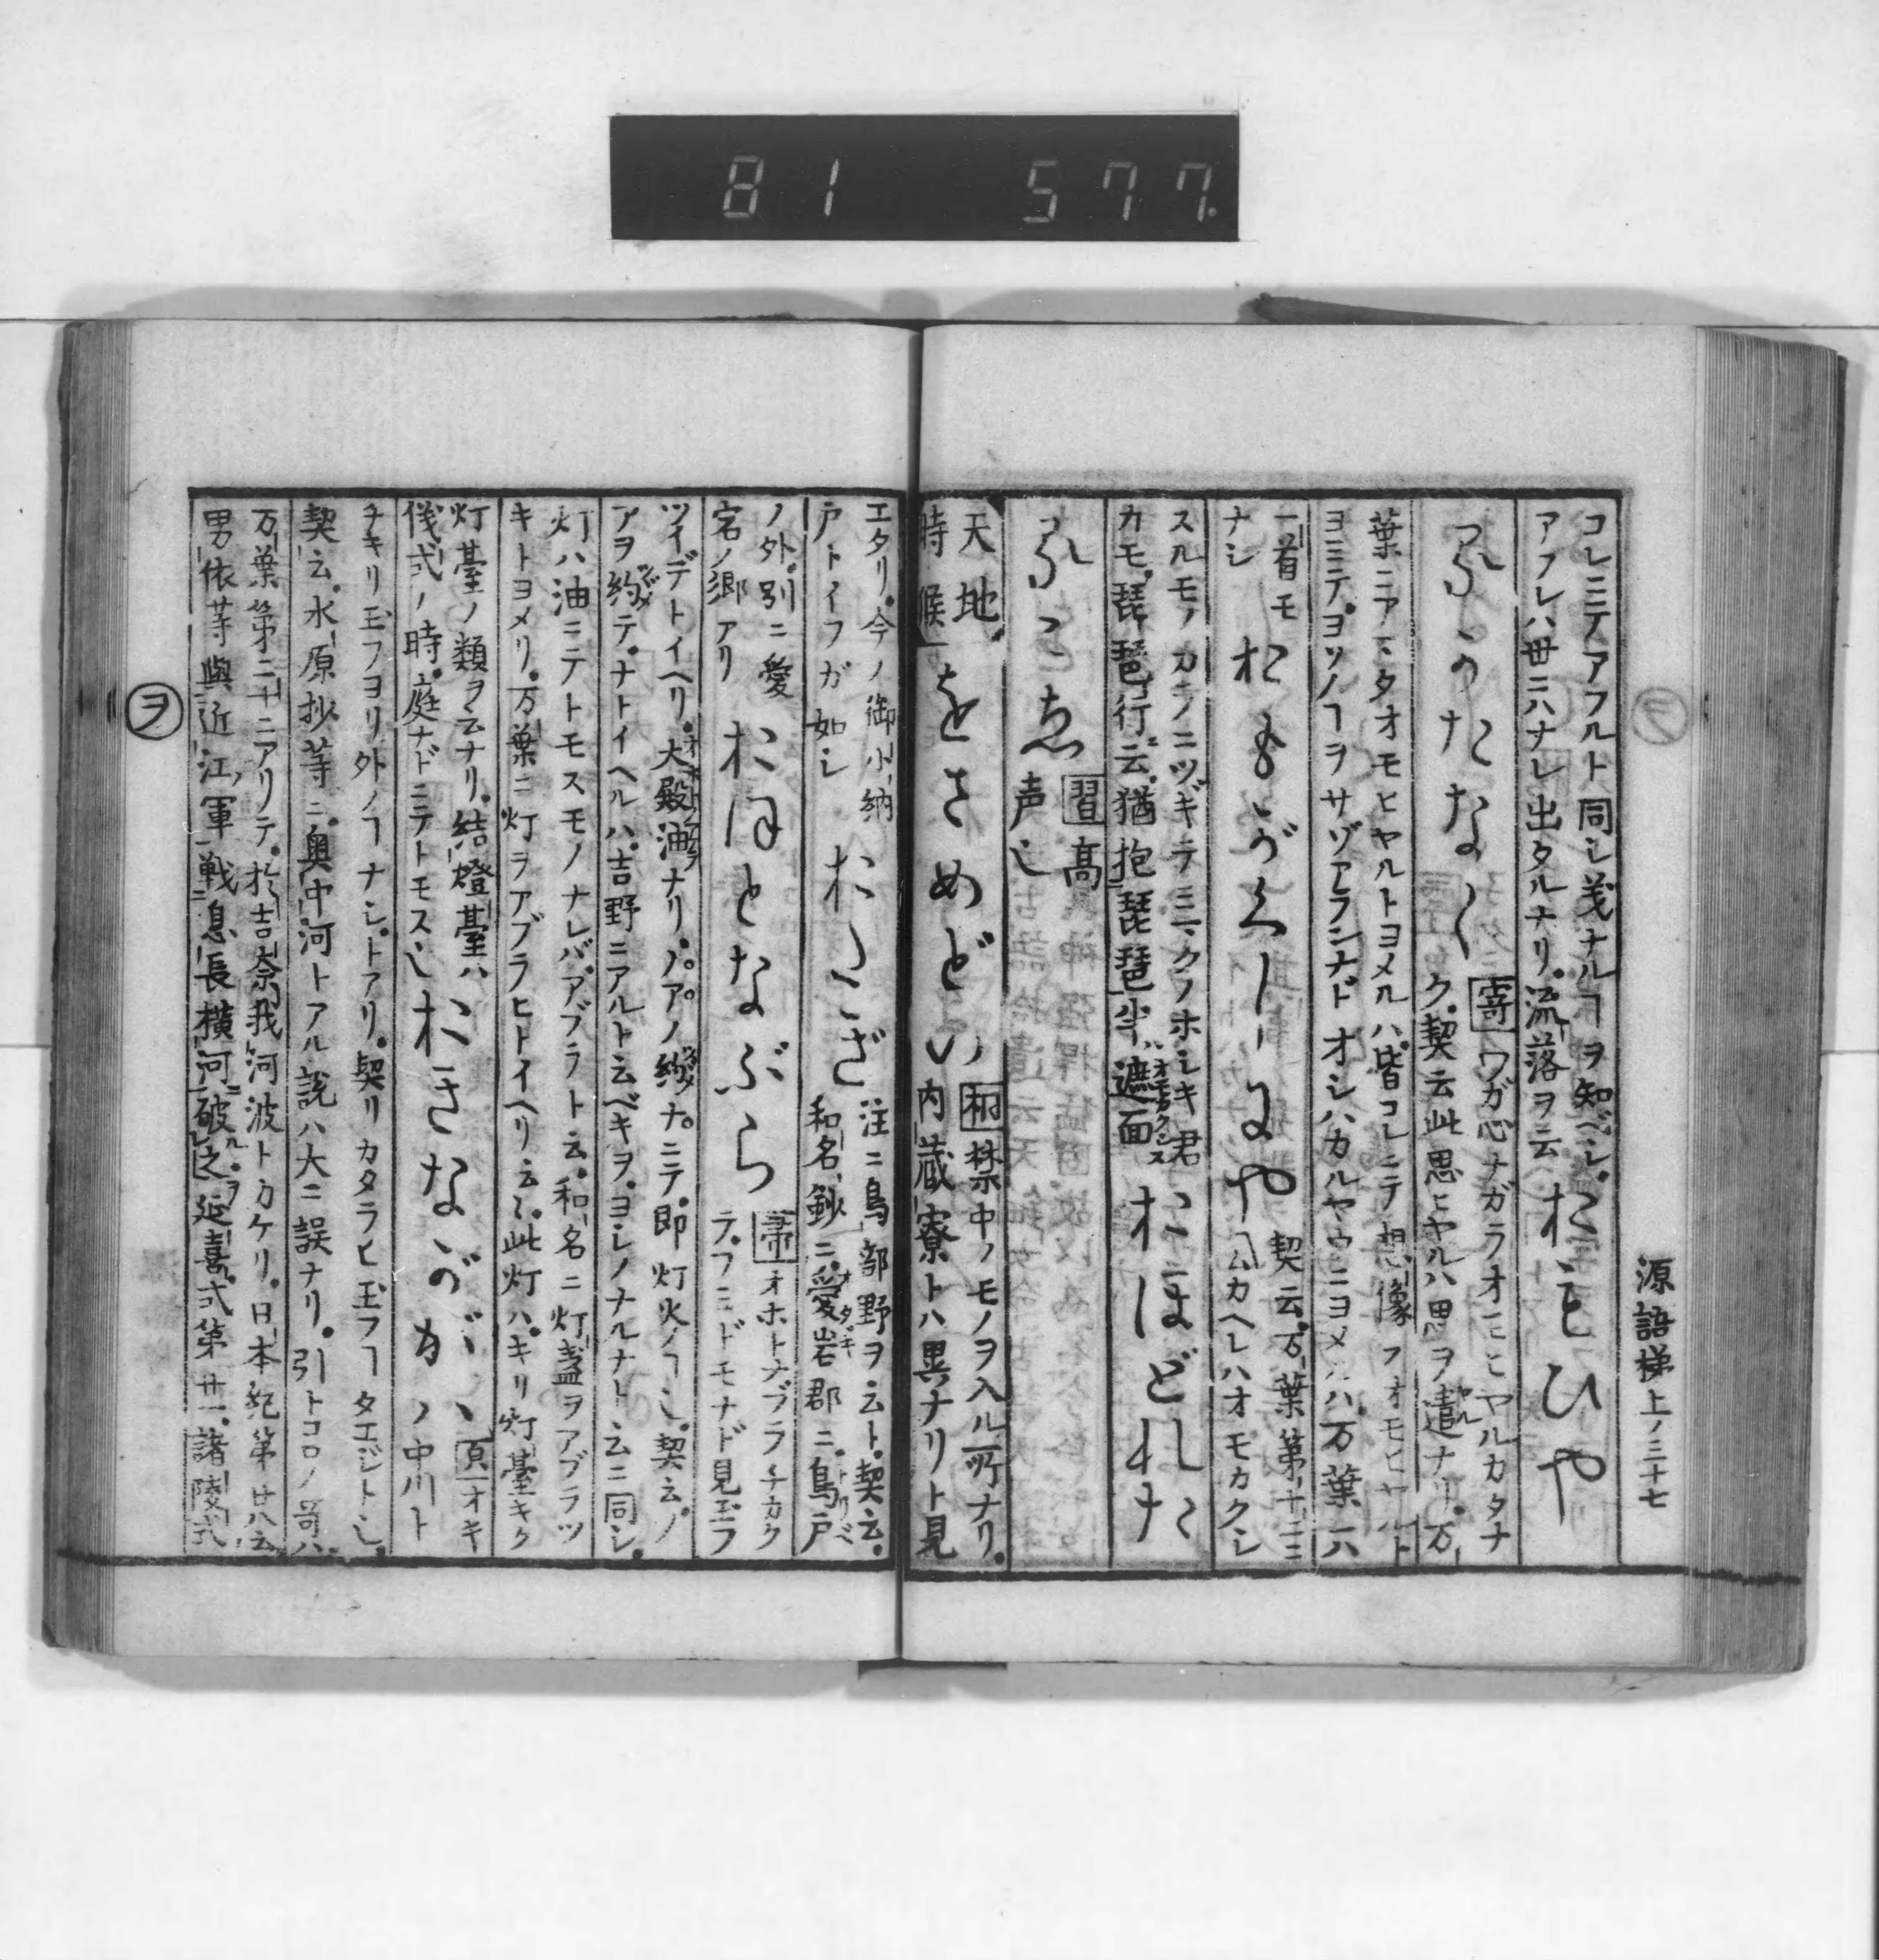 81 577.
源語梯上ノ三十七
コレミテアフルト同シ義ナルヿヲ知ベシ。
アフレハ世ニハナレ出タルナリ。流落ヲ云
おもひや
るかたなく
寄 ワガ心ナガラオモヒヤルカタナ
ク。契云此思ヒヤルハ思ヲ遣ナリ。万
葉ニアマタオモヒヤルトヨメルハ皆コレニテ想像フオモヒヤルト
ヨミテ。ヨソノヿヲサゾアランナドオシハカルヤウニヨメルハ万葉ハ
一首モ
ナシ
おもがくしにや
契云。万葉第十二ニ
スルモノカラノニツギテミマクノホシキ君
カモ。琵琶行云。猶抱琵琶半遮面
おほどれた
るこゑ
習 高
声也
天地
時候
をさめどの
桐 禁中ノモノヲ入ル所ナリ。
内蔵寮トハ異ナリト見
エタリ。今ノ御小納
戸トイフガ如シ
おたぎ
注ニ鳥部野ヲ云ト。契云。
和名鈔ニ愛宕郡ニ。鳥戸
ノ外別ニ愛
宕ノ郷アリ
おほとなぶら
帚 オホトナブラチカク
テ。フミドモナド見玉フ
ツイデトイヘリ。大殿油ナリ。ノアノ約ナニテ。即灯火ノヿ也。契云。ノ
アヲ約テ。ナトイヘルハ。吉野ニアルト云ベキヲ。ヨシノナルナト云ニ同シ。
灯ハ油ニテトモスモノナレバ。アブラト云。和名ニ灯盞ヲアブラツ
キトヨメリ。万葉ニ灯ヲアブラヒトイヘリ云々。此灯ハ。キリ灯臺キク
灯臺ノ類ヲ云ナリ。結燈臺ハ
儀式ノ時。庭ナドニテトモス也
おきなががは
オキ
ノ中川ト
チキリ玉フヨリ外ノヿナシ。トアリ。契リカタラヒ玉フヿタエジト也。
契云。水原抄等ニ。奥中河トアル説ハ大ニ誤ナリ。引トコロノ哥ハ。
万葉第二十ニアリテ。於吉奈我河波トカケリ。日本紀第廿八云
男依等與近江軍戦息長横河破之延喜式第廿一。諸陵式
ヲ